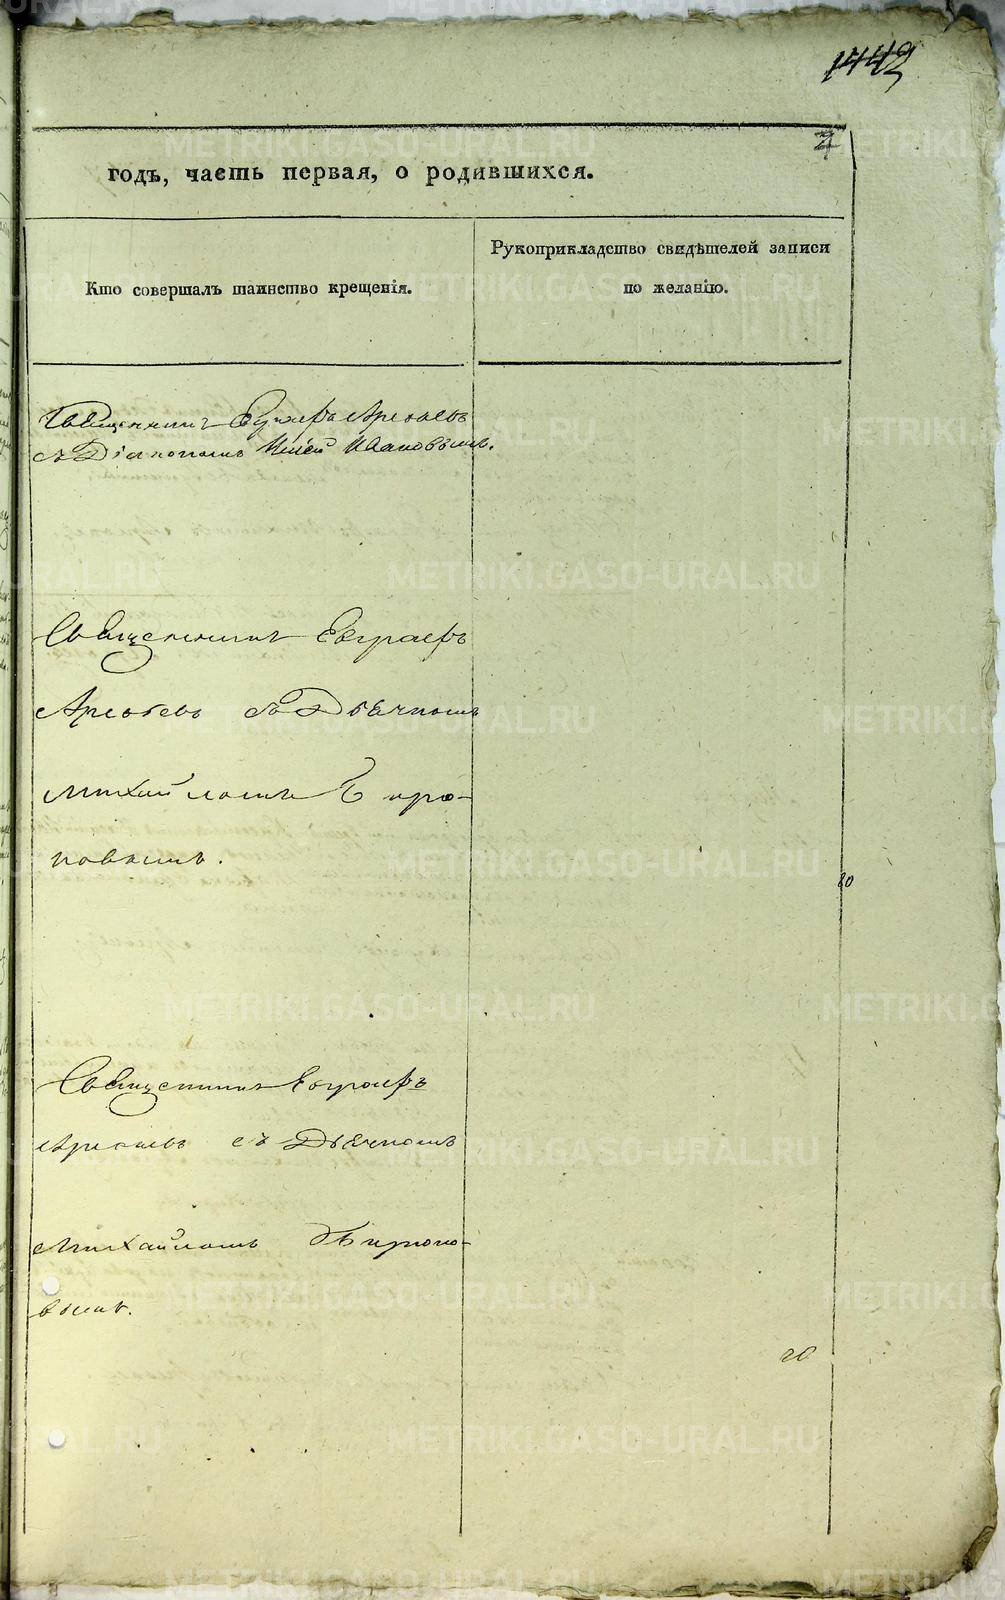 1442
2
годъ, часть первая, о родившихся.
Кто совершалъ таинство крещенія.
Рукоприкладство свидѣтелей записи
по желанію.
Священникъ Евграфъ Арефьевъ
съ Діакономъ Ивановымъ.
Священникъ Евграфъ
Арефьевъ съ Дьячкомъ
Михайломъ Биро-
ковымъ.
Священникъ Евграфъ
Арефьевъ съ Дьячкомъ
Михайломъ Бирюко-
вымъ.
METRIKI.GASO-URAL.RU